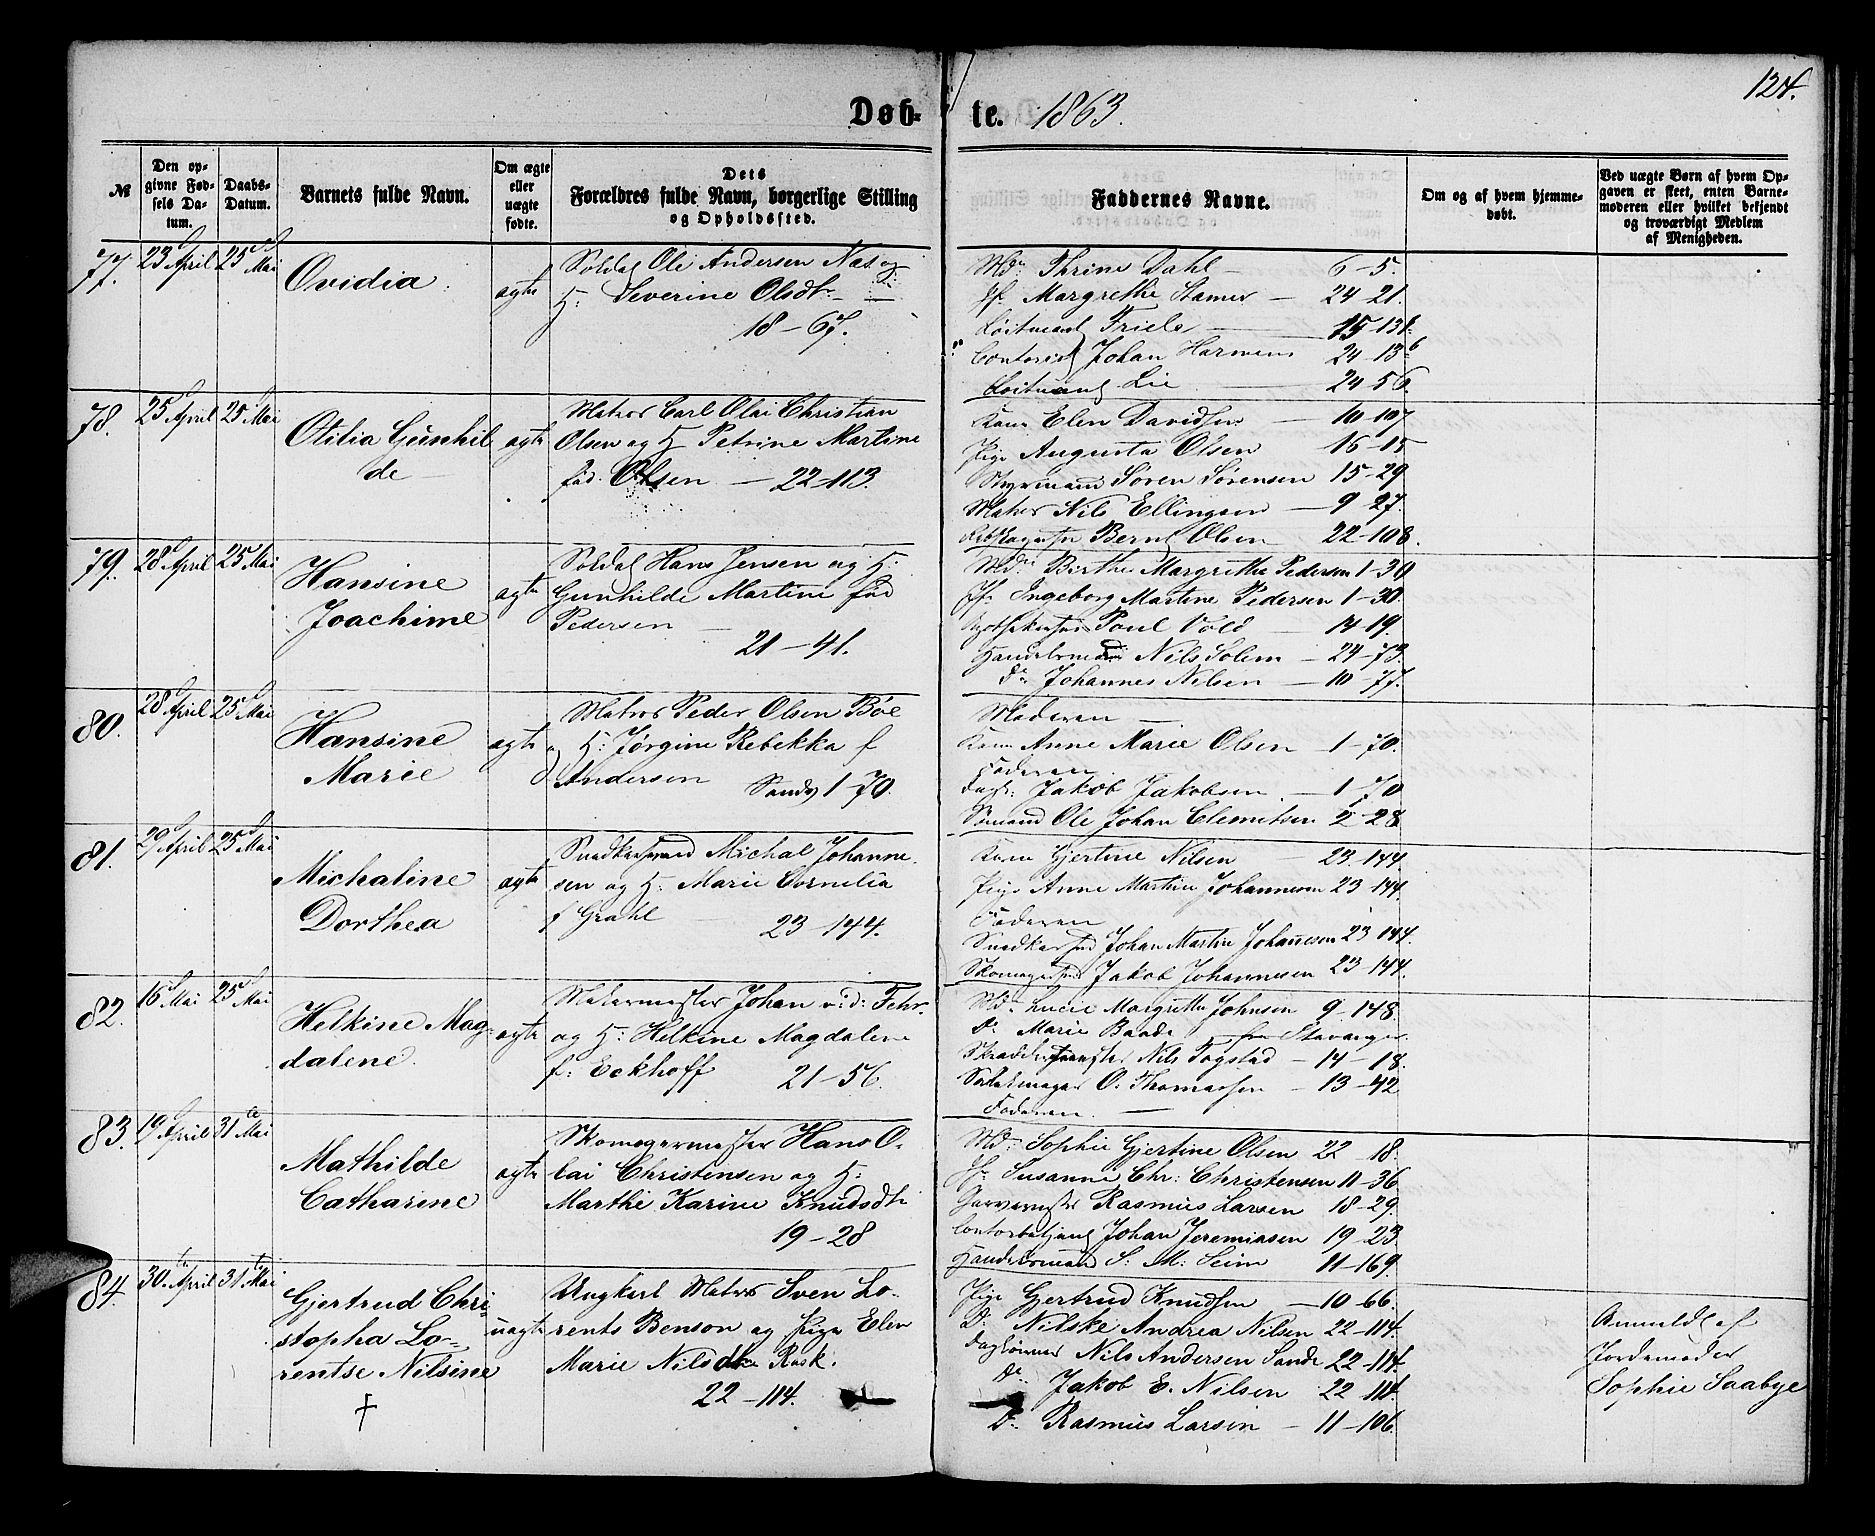 124.
Døb-te. 1863.
№
Den opgivne Fødsels Datum.
Daabs-Datum.
Barnets fulde Navn.
Om ægte eller uægte fødte.
Dets Forældres fulde Navn, borgerlige Stilling og Opholdssted.
Faddernes Navne.
Om og af hvem hjemmedøbt.
Ved uægte Børn af hvem Opgaven er skeet, enten Barnemoderen eller hvilket bekjendt og troværdigt Medlem af Menigheden.
77. 23 April 25 Mai
Ovidia
ægte
Soldat Ole Andersen Næs og
H: Severine Olsdtr
18-67.
Md: Thrine Dahl 6-5.
Jf. Margrethe Stamer 24-21.
Løitnant Friele 15-131.
Contorist Johan Harmens 24-136
Løitnant Lie 24-56
78. 25 April 25 Mai
Otilia Gunhil
de
ægte
Matros Carl Olai Christian
Olsen og H Petrine Martine
fød Olsen 22-113.
Kone Elen Davidsen 10-107
Pige Augusta Olsen 16-15
Styrmand Søren Sørensen 15-29
Matros Nils Ellingsen 9-27.
Bernt Olsen 22-108.
79. 28 April 25 Mai
Hansine
Joachime
ægte
Soldat Hans Jensen og H:
Gunhilde Martine fød
Pedersen
21-41.
Md: Birthe Margrethe Pedersen 1-30
Jf. Ingeborg Martine Pedersen 1-30.
Poul Vold 14-19.
Handelsmand Nils Solem 24-73.
Do Johannes Nilsen 10-77.
80. 28 April 25 Mai
Hansine
Marie
ægte
Matros Peder Olsen Bøe
og H: Jørgine Rebekka f
Andersen Sandv 1-70.
Moderen
Kone Anne Marie Olsen 1-70.
Faderen
Dagl: Jakob Jakobsen 1-70
Sømand Ole Johan Clemetsen 2-28
81. 29 April 25 Mai
Michaline
Dorthea
ægte
Snedkersvend Michal Johanne-
sen og H: Marie Cornelia
f Grahl 23-144.
Kone Gjertine Nilsen 23-144.
Pige Anne Martine Johannesen 23-144.
Faderen
Snedkersvd Johan Martin Johannesen 23-144.
Skomagersvd Jakob Johannesen 23-144.
82. 16 Mai 25 Mai
Helkine Mag-
dalene.
ægte
Malermester Johan v:d: Fehr
og H: Helkine Magdalene
f: Eckhoff 21-56.
Md: Lucie Margrethe Johnsen 9-148
Do Marie Baade fra Stavanger
Skræddermester Nils Fogstad 14-18.
O. Thomassen 13-42
Faderen
83. 19 April 31te Mai
Mathilde
Catharine
ægte
Skomagermester Hans O-
lai Christensen og H:
Marthe Karine Knudsdtr
19-28
Md: Sophie Gjertine Olsen 22-18.
Jf. Susanne Chr: Christensen 11-36
Garvermester Rasmus Larsen 18-29.
Contorbetjent Johan Jeremiasen 19-23
Handelsmand S: M: Seim 11-169.
84. 30te April 31te Mai
Gjertrud Chri-
stopha Lo-
rentse Nilsine
†
uægte
Ungkarl Matros Sven Lo-
rents Benson og Pige Elen
Marie Nilsdtr Rask.
22-114.
Pige Gjertrud Knudsen 10-66.
Do Nilske Andrea Nilsen 22-114.
Dagl­ønner Nils Andersen Sande 22-114.
Do Jakob E. Nilsen 22-114.
Do Rasmus Larsen 11-106.
Anmeldt af
Jordemoder
Sophie Saabye